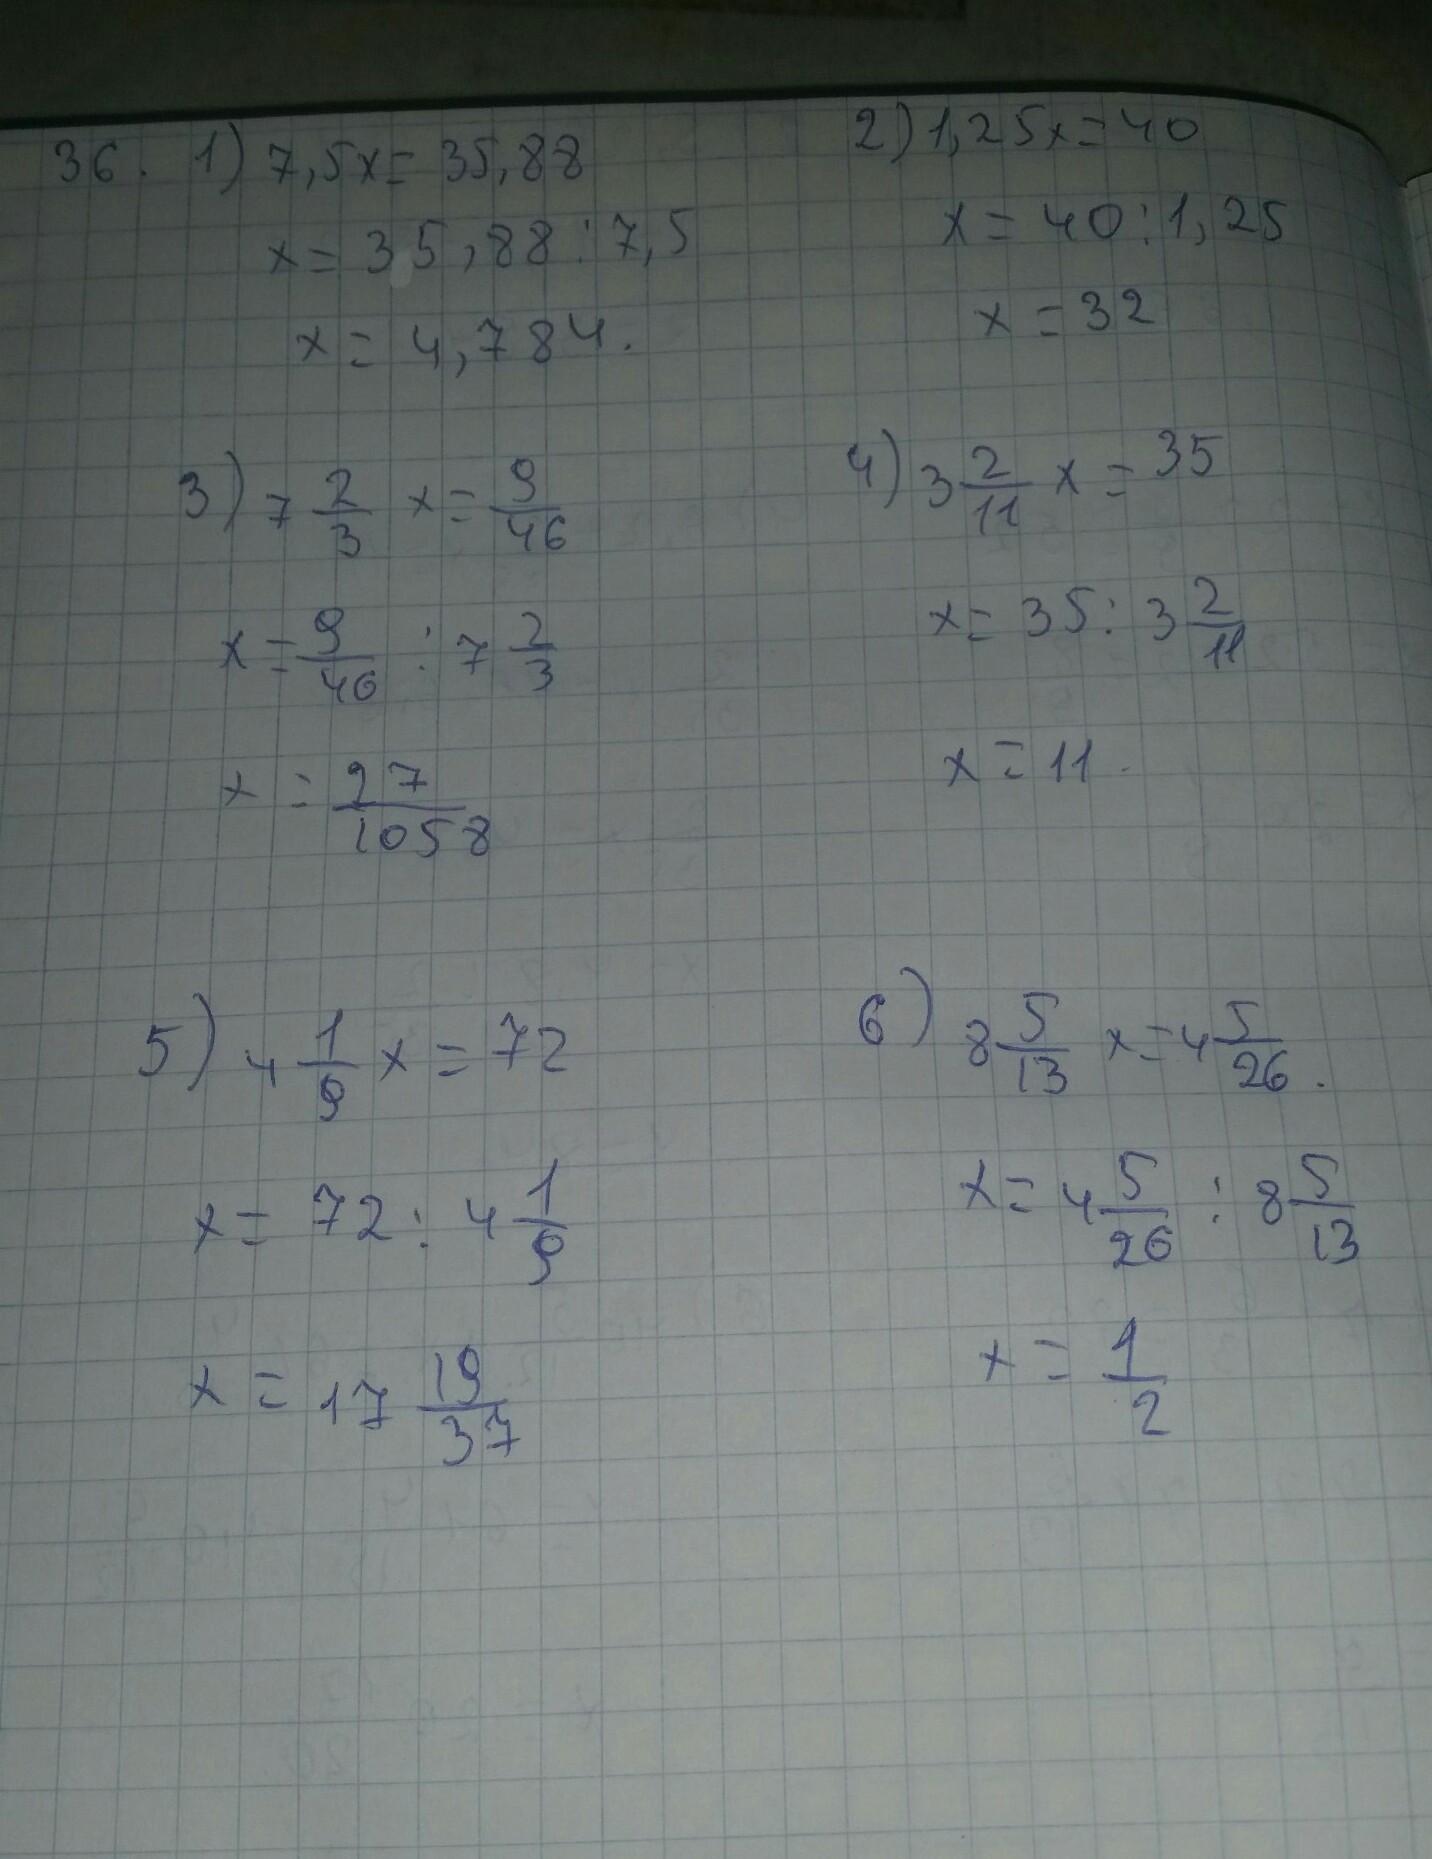 36. 1) 7,5x = 35,88
x = 35,88 : 7,5
x = 4,784.
2) 1,25x = 40
x = 40 : 1,25
x = 32
3) 7 2/3 x = 9/46
x = 9/46 : 7 2/3
x = 27/1058
4) 3 2/11 x = 35
x = 35 : 3 2/11
x = 11.
5) 4 1/9 x = 72
x = 72 : 4 1/9
x = 17 19/37
6) 8 5/13 x = 4 5/26.
x = 4 5/26 : 8 5/13
x = 1/2